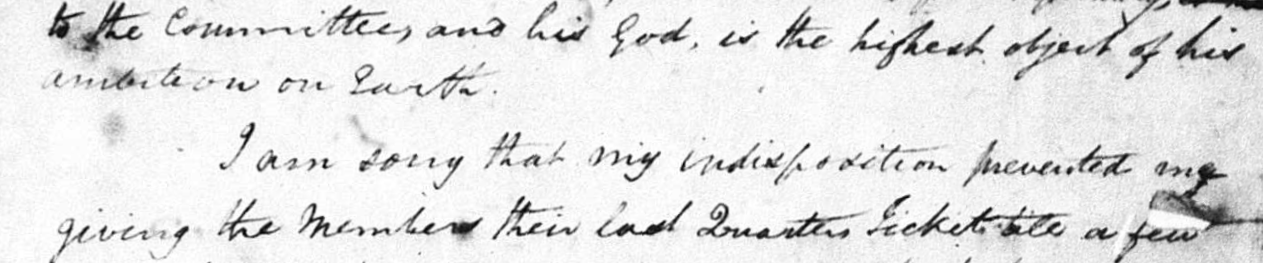 to the Committee, and his God, is the highest object of his
ambition on Earth.
I am sorry that my indisposition prevented me
giving the Members their last Quarters Tickets till a few